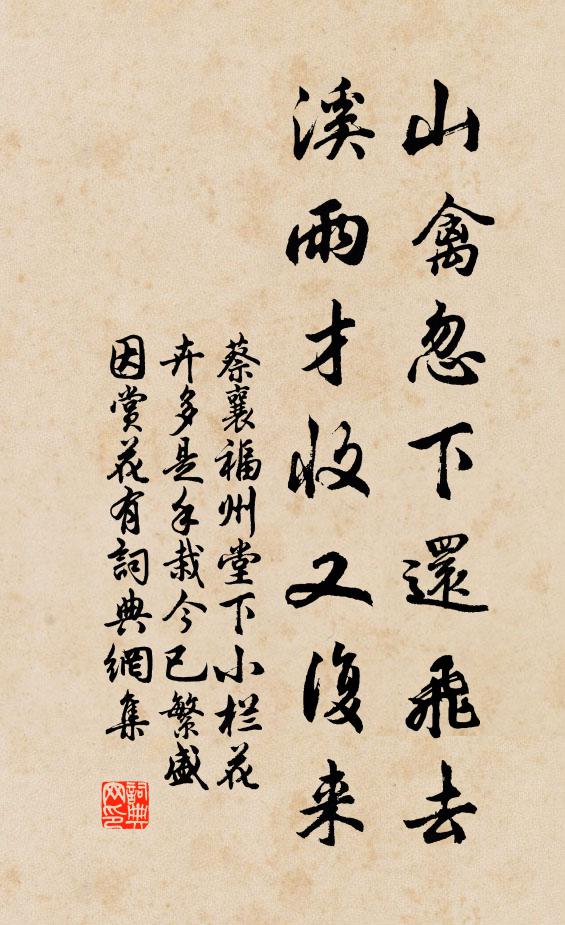 山禽忽下還飛去
溪雨才收又復来
蔡襄福州堂下小栏花
卉多是手栽今已繁盛
因賞花有詞典網集
詞典
网印